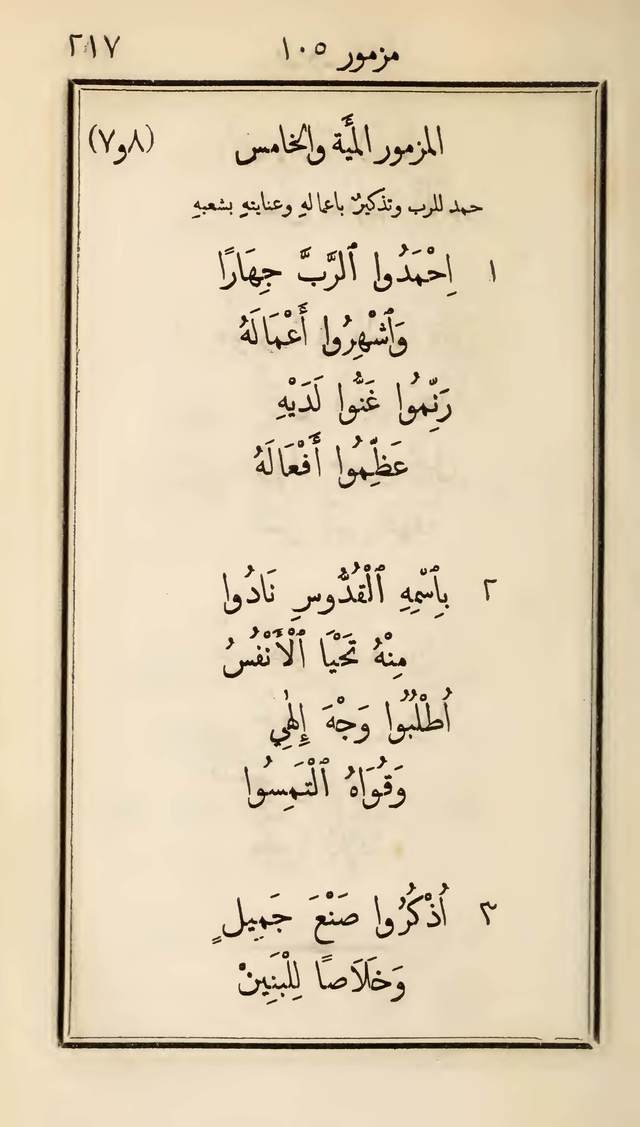 مزمور ١٠٥ ٢١٧
المزمور المئَة والخامس (٨و٧)
حمد للرب وتذكيرٌ باعمالهِ وعنايتهِ بشعبهِ
١ اِحْمَدُوا ٱلرَّبَّ جِهَارًا
وَٱشْهِرُوا أَعْمَالَهُ
رَنِّمُوا غَنُّوا لَدَيْهِ
عَظِّمُوا أَفْعَالَهُ
٢ بِٱسْمِهِ ٱلْقُدُّوسِ نَادُوا
مِنْهُ تَحْيَا ٱلْأَنْفُسُ
اُطْلُبُوا وَجْهَ إِلٰهِي
وَقُوَاهُ ٱلْتَمِسُوا
٣ اُذْكُرُوا صَنْعَ جَمِيلٍ
وَخَلَاصًا لِلْبَنِينْ